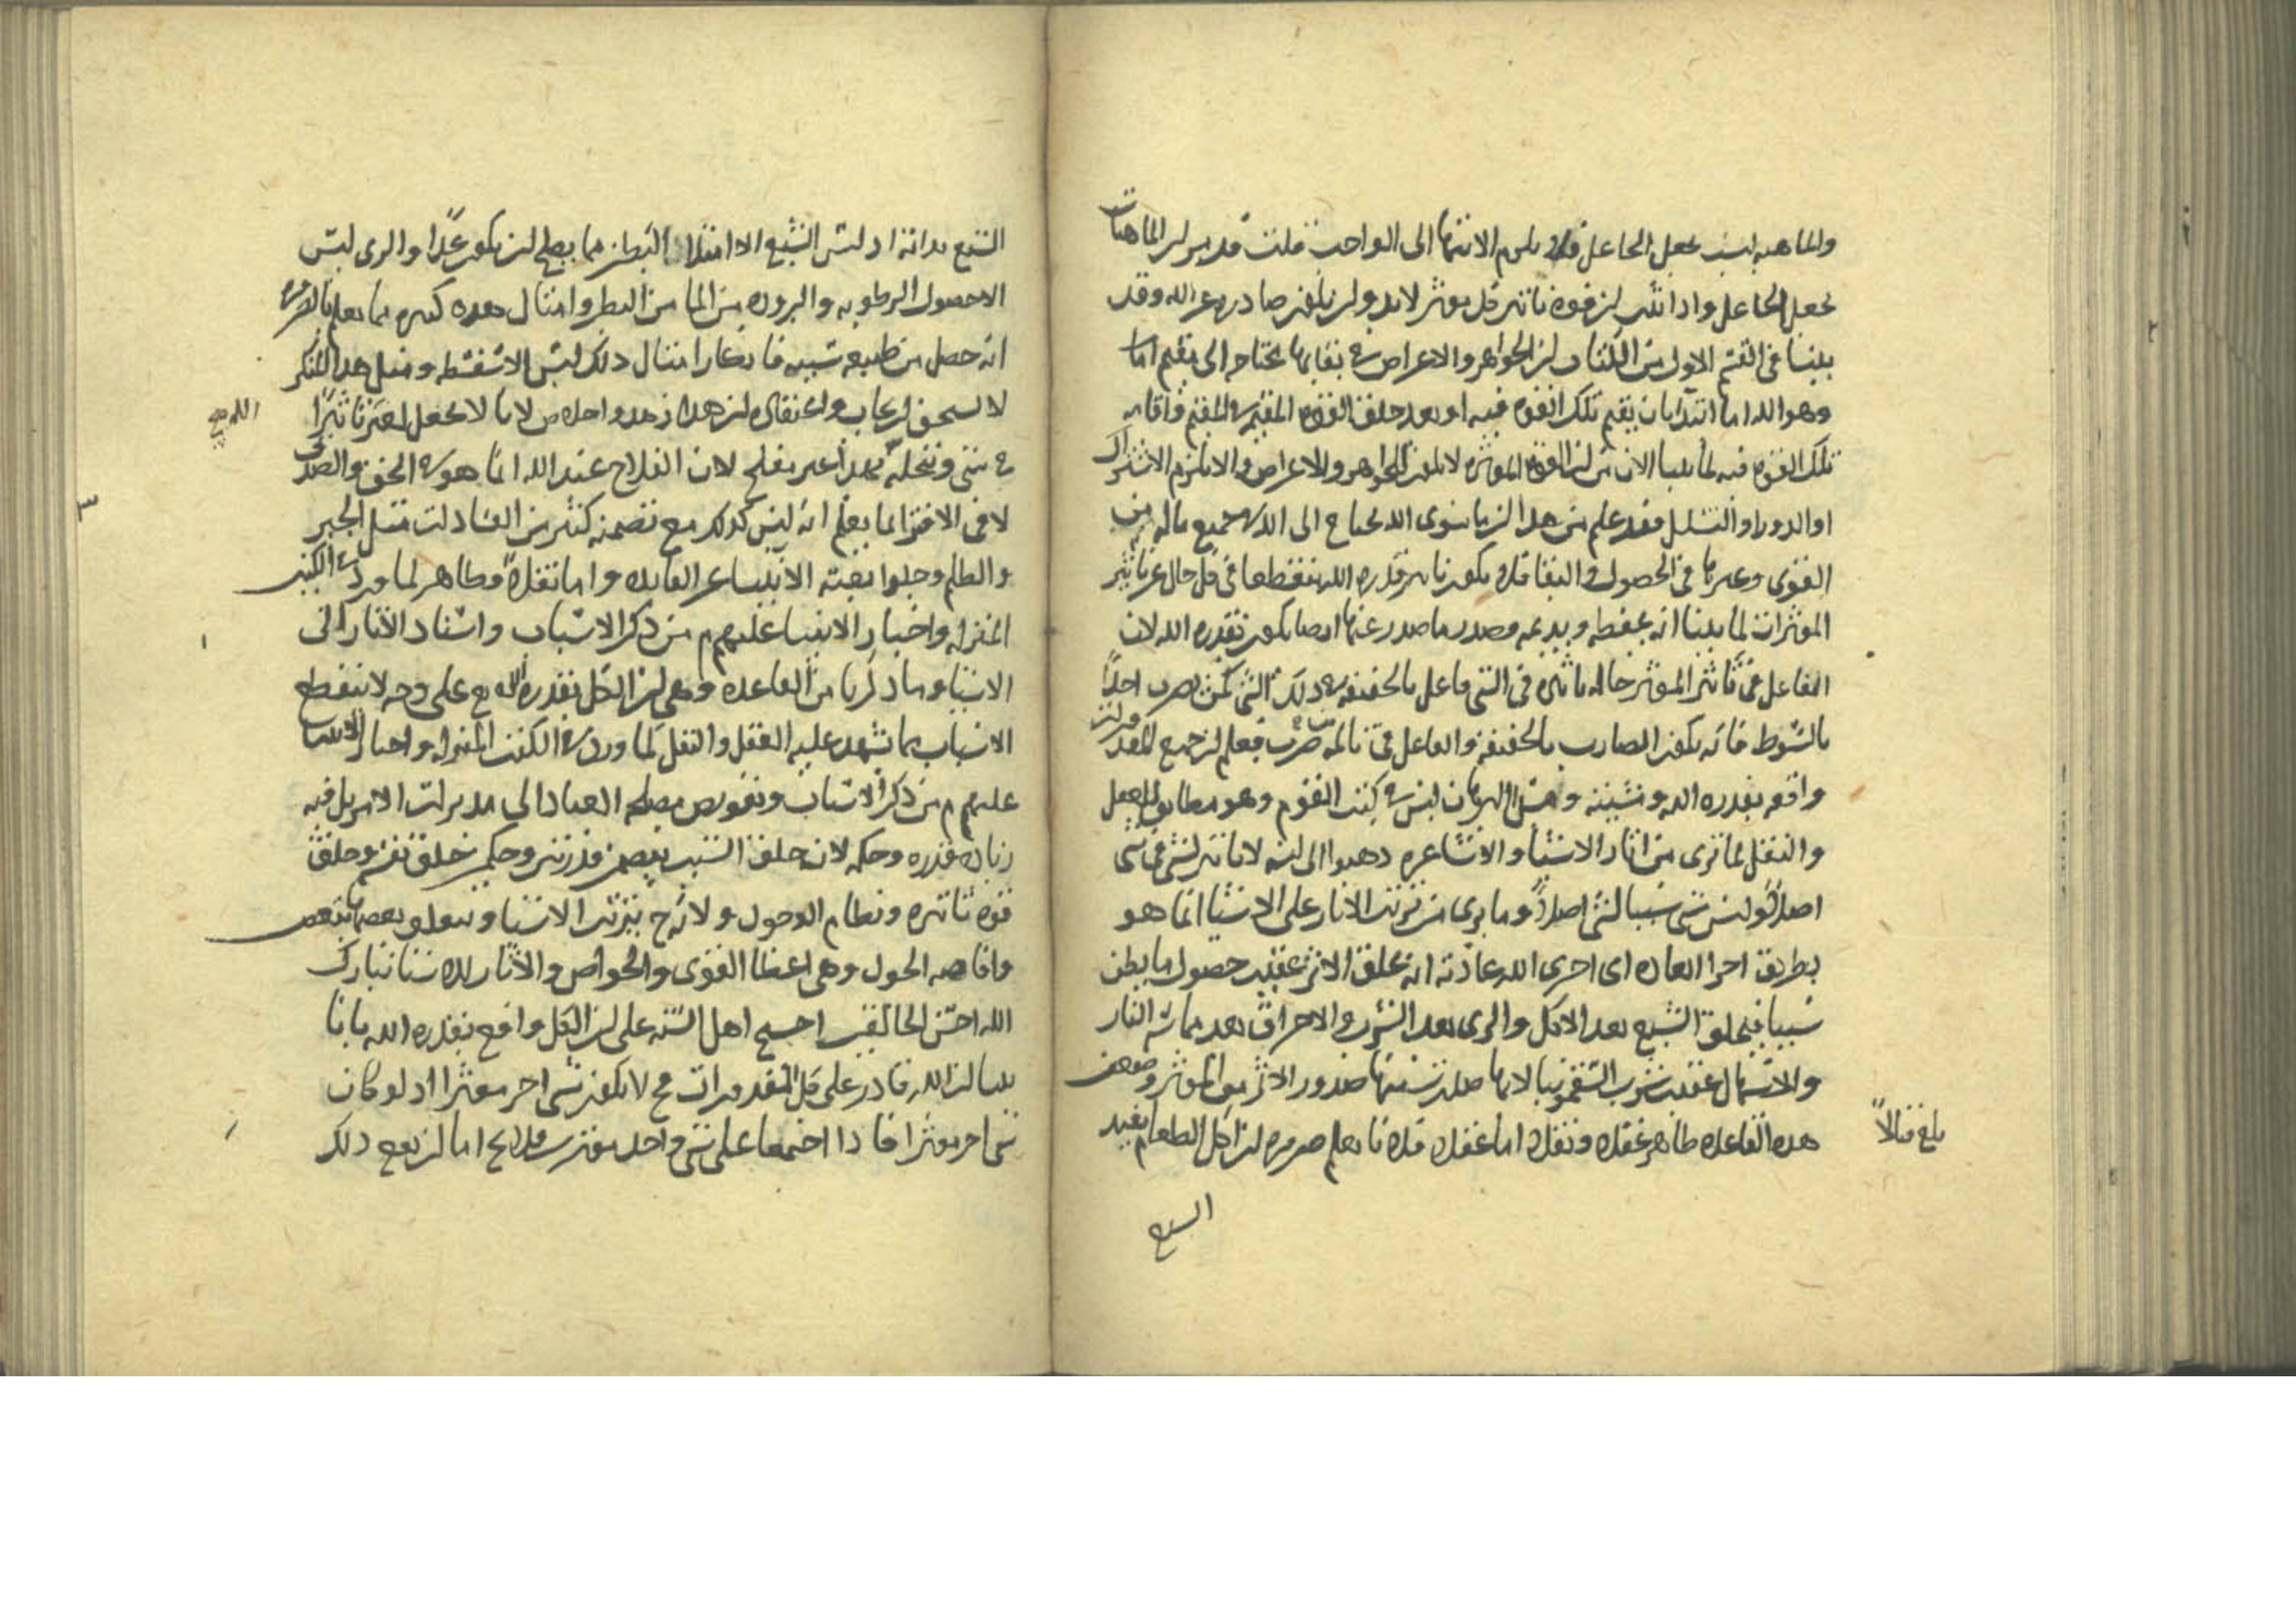 والماهيه ليست بجعل الجاعل فلا يلزم الانتها الى الواجب قلت قد مر ان الماهيات
بجعل الجاعل واذا ثبت ان قوه تاثير كل موثر لا بد وان يكون صادره عن الله وقد
بينا في القسم الاول من الكتاب ان الجواهر والاعراض في بقايها محتاجه الى مقيم اما
وهو الله اما ابتدا بان يقيم تلك القوه فيه او بعد خلق القوه المقيمه في المقيم واقامه
تلك القوه فيه لما بينا الان من ان القوه الموثره لا الجواهر والاعراض والا يلزم الاشتراك
او الدور او التسلسل فقد علم من هذا ان ما سوى الله يحتاج الى الله في جميع ماله من
القوى وغيرها في الحصول والبقا فلا يكون تاثير قدره الله منقطعا في كل حال عن تاثير
الموثرات لما بينا انه يحفظه ويديمه فصدر ما صدر عنها ايضا يكون بقدره الله لان
الفاعل في تاثير الموثر حاله تاثيره في الشي فاعل بالحقيقه في ذلك الشي كمن ضرب احدا
بالسوط فانه يكون الضارب بالحقيقه والفاعل في تالمه ضرب فعلم ان جميع المقدورات
واقعه بقدره الله ومشيته و البرهان ليس في كتب القوم وهو مطابق للعقل
والنقل لما نرى من اثار الاشيا والاشاعره ذهبوا الى انه لا تاثير لشي في شي
اصلا وليس شي سببا لشي اصلا وما يرى من ترتب الاثار على الاشيا انما هو
بطريق اجرا العاده اي اجرى الله عادته انه يخلق الاثر عقيب حصول ما يظن
سببا فيخلق الشبع بعد الاكل والري بعد الشرب والاحراق بعد مماسه النار
والاسهال عقيب شرب السقمونيا لا انها صدور الاثر من الموثر وضعف
هذه القاعده ظاهر عقلا ونقلا اما عقلا فلانا نعلم ضروره ان اكل الطعام يفيد
بلغ قبالا
الشبع
الشبع بذاته اذ ليس الشبع الا امتلا البطن مما يصلح ان يكون غذا والري ليس
الا حصول الرطوبه والبروده من الما في البطن وامثال هذه كثيره مما يعلم بالضروره
انه حصل من طبيعه سببه فانكار امثال ذلك ليس الا سفسطه ومثل هذا المنكر
لا يستحق واعتقاده ان هذا زهد واخلاص لانا لا نجعل لغير تاثيرا
الله صح
في شي ونحله غير مفلح لان الفلاح عند الله انما هو في الحق والصدق
لا في الافترا بما يعلم انه ليس كذلك مع تضمنه كثير من الفسادات مثل الجبر
والظلم وخلو بعثه الانبيا عن الفايده واما نقلا فظاهر لما ورد في الكتب
المنزله واخبار الانبيا عليهم م من ذكر الاسباب واسناد الاثار الى
الاشيا وما ذكرنا من القاعده وهي ان الكل بقدره الله تع على وجه لا ينقطع
الاسباب مما يشهد عليه العقل والنقل لما ورد في الكتب المنزله واخبار الانبيا
عليهم م من ذكر الاسباب وتفويض مصلحه العباد الى مدبرات الامر بل فيه
زياده قدره وحكمه لان خلق السبب يتضمن قدرتين وحكمتين خلق نفسه وخلق
قوه تاثيره ونظام الوجود ولانه ح يترتب الاشيا ويتعلق بعضها ببعض
وافاضه الجود وهي اعطا القوى والخواص والاثار للاشيا تبارك
الله احسن الخالقين احتج اهل السنه على ان الكل واقع بقدره الله بانا
بينا ان الله قادر على كل المقدورات فح لا يكون شي اخر موثرا اذ لو كان
شي اخر موثرا فاذا اجتمعا على شي واحد اما ان يقع ذلك